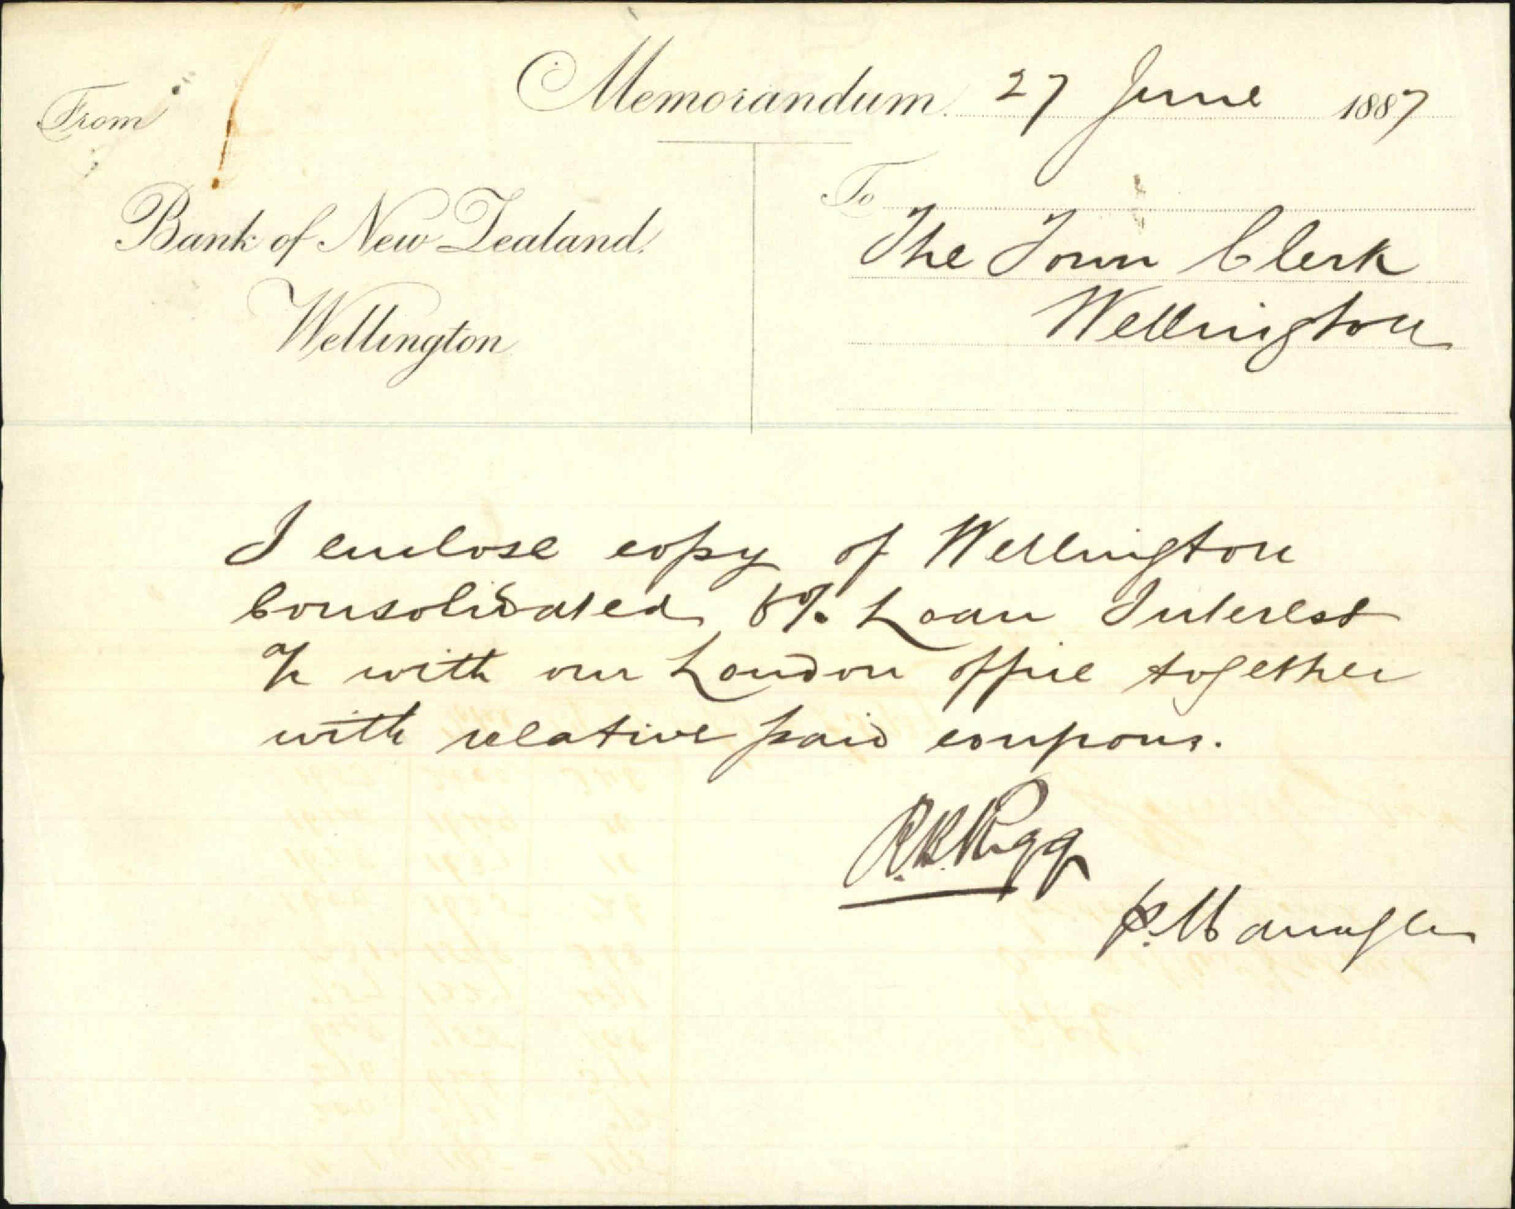 Memorandum. 27 June 1887
From
Bank of New Zealand.
Wellington
To
The Town Clerk
Wellington
I enclose copy of Wellington
Consolidated 6% Loan Interest
a/c with our London office together
with relative paid coupons.
R.B. Rigg
p. Manager